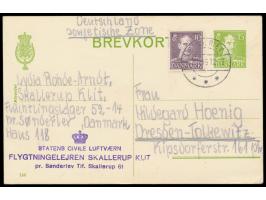 Deutschland
sowjetische Zone
BREVKORT
Lydia Rohde-Arndt,
Skallerup Klit,
Flüchtlingslager 52-14
pr. Sønderlev Danmark
Haus 118
Frau
Hildegard Hoenig
Dresden-Tolkewitz
Kipsdorferstr. 161
STATENS CIVILE LUFTVÆRN
FLYGTNINGELEJREN SKALLERUP KLIT
pr. Sønderlev Tlf. Skallerup 61
10
15